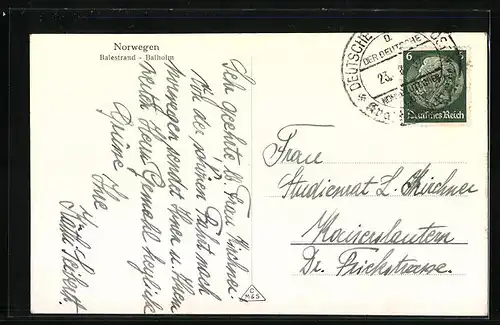 Norwegen
Balestrand - Balholm
Frau Kirchner.
Von der schönen Fahrt nach
Norwegen sendet Ihnen u. Ihrem
Herrn Gemahl herzliche
Grüsse Ihre
DEUTSCHE
DER DEUTSCHE
23.
6
Deutsches Reich
Frau
Studienrat L. Kirchner
Kaiserslautern
Dr. Frickstrasse.
M&S